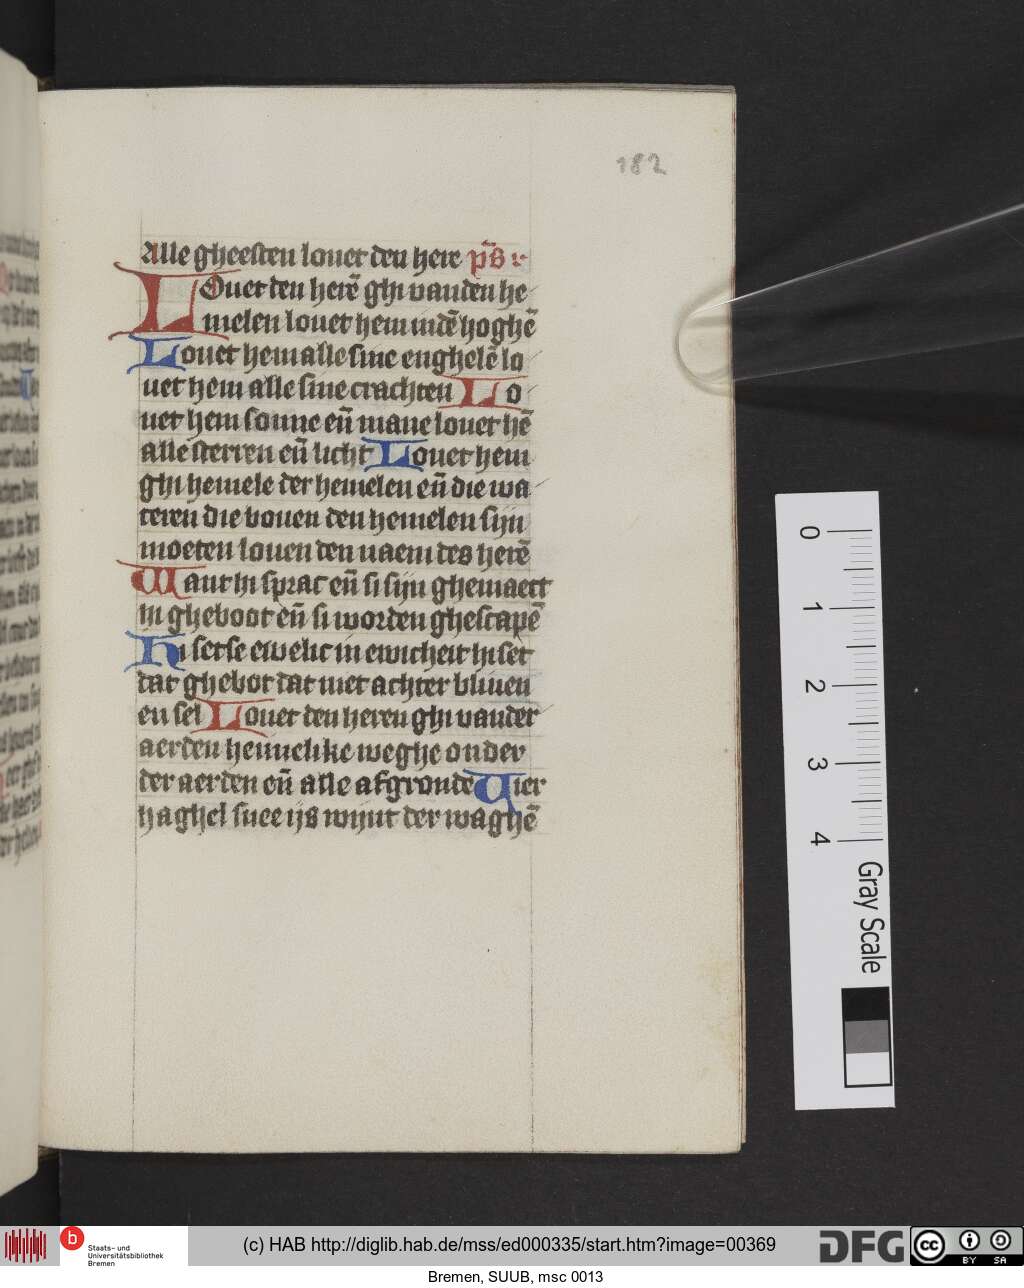 182
Alle gheesten louet den here ps̄
LOuet den herē ghi vanden he
melen louet hem indē hoghē
Louet hem alle sine enghelē lo
uet hem alle sine crachten Lo
uet hem sonne en̄ mane louet hē
alle sterren en̄ licht Louet hem
ghi hemele der hemelen en̄ die wa
teren die bouen den hemelen sijn
moeten louen den naem des herē
Want hi sprac en̄ si sijn ghemaect
hi gheboot en̄ si worden ghescapē
Hi setse ewelic in ewicheit hi set
dat ghebot dat niet achter bliuen
en sel Louet den heren ghi vander
aerden hemelike weghe onder
der aerden en̄ alle afgronde Vier
haghel snee ijs wijnt der waghē
0
1
2
3
4
Gray Scale
b Staats- und
Universitätsbibliothek
Bremen
(c) HAB http://diglib.hab.de/mss/ed000335/start.htm?image=00369
DFG
cc BY SA
Bremen, SUUB, msc 0013